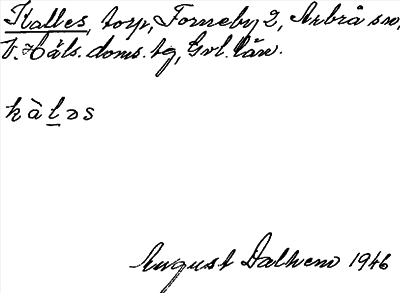 Kalles, torp, Forneby 2, Arbrå sn,
V. Häls. doms. tg, Gvl. län.
kàl̲əs
August Dalhem 1946